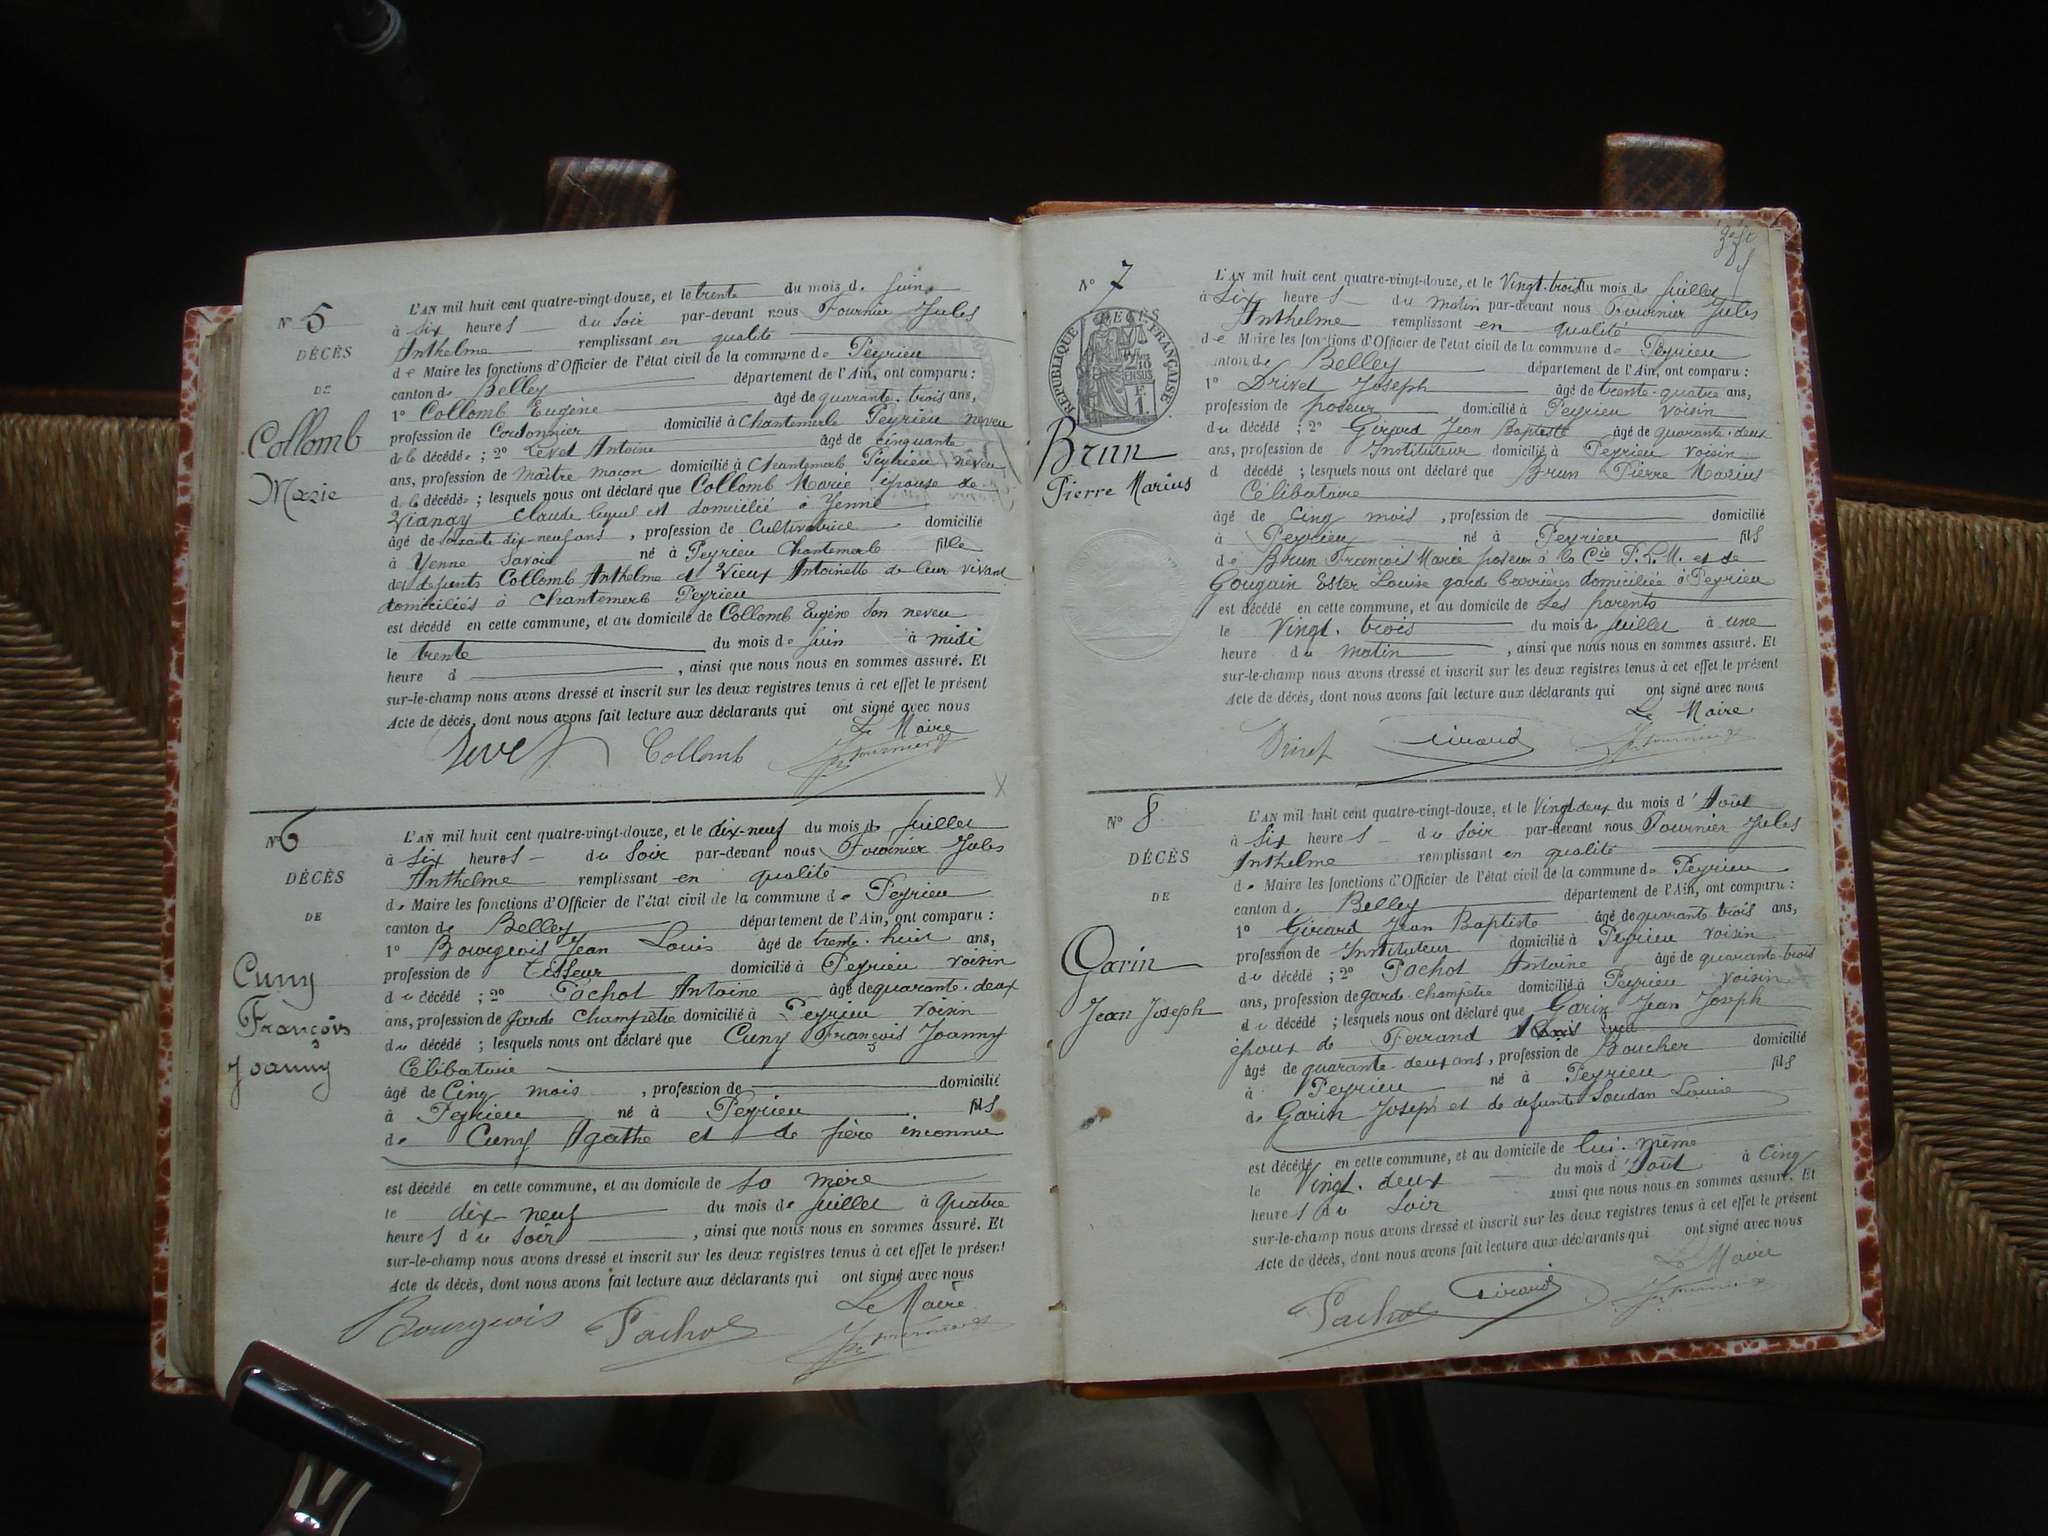 N° 5
DÉCÈS
DE
Collomb
Marie
L'AN mil huit cent quatre-vingt-douze, et le trente du mois de Juin
à six heures du soir par-devant nous Fournier Jules
Anthelme remplissant en qualité
de Maire les fonctions d'Officier de l'état civil de la commune de Peyrieu
canton de Belley département de l'Ain, ont comparu :
1° Collomb Eugène âgé de quarante-trois ans,
profession de Cordonnier domicilié à Chantemerle Peyrieu neveu
de la décédée ; 2° Levet Antoine âgé de cinquante
ans, profession de maître maçon domicilié à Chantemerle Peyrieu neveu
de la décédée ; lesquels nous ont déclaré que Collomb Marie épouse de
Vianay Claude lequel est domicilié à Yenne
âgé de soixante dix-neuf ans, profession de Cultivatrice domicilié
à Yenne Savoie né à Peyrieu Chantemerle fille
des défunts Collomb Anthelme et Vieux Antoinette de leur vivant
domiciliés à Chantemerle Peyrieu
est décédé en cette commune, et au domicile de Collomb Eugène son neveu
le trente du mois de juin à midi
heure d , ainsi que nous nous en sommes assuré. Et
sur-le-champ nous avons dressé et inscrit sur les deux registres tenus à cet effet le présent
Acte de décès, dont nous avons fait lecture aux déclarants qui ont signé avec nous
Le Maire
Levet Collomb J. Fournier
N° 6
DÉCÈS
DE
Cuny
François
Joanny
L'AN mil huit cent quatre-vingt-douze, et le dix-neuf du mois de Juillet
à six heures du soir par-devant nous Fournier Jules
Anthelme remplissant en qualité
de Maire les fonctions d'Officier de l'état civil de la commune de Peyrieu
canton de Belley département de l'Ain, ont comparu :
1° Bourgeois Jean Louis âgé de trente-huit ans,
profession de tisseur domicilié à Peyrieu voisin
du décédé ; 2° Pachot Antoine âgé de quarante-deux
ans, profession de garde champêtre domicilié à Peyrieu voisin
du décédé ; lesquels nous ont déclaré que Cuny François Joanny
Célibataire
âgé de Cinq mois , profession de domicilié
à Peyrieu né à Peyrieu fils
de Cuny Agathe et de père inconnu
est décédé en cette commune, et au domicile de sa mère
le dix-neuf du mois de juillet à quatre
heures du soir , ainsi que nous nous en sommes assuré. Et
sur-le-champ nous avons dressé et inscrit sur les deux registres tenus à cet effet le présent
Acte de décès, dont nous avons fait lecture aux déclarants qui ont signé avec nous
Le Maire
Bourgeois Pachot J. Fournier
N° 7
DÉCÈS
RÉPUBLIQUE FRANÇAISE
Brun
Pierre Marius
L'AN mil huit cent quatre-vingt-douze, et le Vingt-trois du mois de juillet
à six heures du matin par-devant nous Fournier Jules
Anthelme remplissant en qualité
de Maire les fonctions d'Officier de l'état civil de la commune de Peyrieu
canton de Belley département de l'Ain, ont comparu :
1° Drivet Joseph âgé de trente-quatre ans,
profession de poseur domicilié à Peyrieu voisin
du décédé ; 2° Girard Jean Baptiste âgé de quarante-deux
ans, profession de Instituteur domicilié à Peyrieu voisin
d décédé ; lesquels nous ont déclaré que Brun Pierre Marius
Célibataire
âgé de cinq mois , profession de domicilié
à Peyrieu né à Peyrieu fils
de Brun François Marie poseur à la Cie P.L.M. et de
Goujain Ester Louise garde barrières domiciliée à Peyrieu
est décédé en cette commune, et au domicile de ses parents
le Vingt-trois du mois de juillet à une
heure du matin , ainsi que nous nous en sommes assuré. Et
sur-le-champ nous avons dressé et inscrit sur les deux registres tenus à cet effet le présent
Acte de décès, dont nous avons fait lecture aux déclarants qui ont signé avec nous
Le Maire
Drivet Girard J. Fournier
N° 8
DÉCÈS
DE
Garin
Jean Joseph
L'AN mil huit cent quatre-vingt-douze, et le Vingt-deux du mois d'Août
à six heures du soir par-devant nous Fournier Jules
Anthelme remplissant en qualité
de Maire les fonctions d'Officier de l'état civil de la commune de Peyrieu
canton de Belley département de l'Ain, ont comparu :
1° Girard Jean Baptiste âgé de quarante trois ans,
profession de Instituteur domicilié à Peyrieu voisin
du décédé ; 2° Pachot Antoine âgé de quarante-trois
ans, profession de garde-champêtre domicilié à Peyrieu voisin
du décédé ; lesquels nous ont déclaré que Garin Jean Joseph
époux de Ferrand
âgé de quarante-deux ans, profession de Boucher domicilié
à Peyrieu né à Peyrieu fils
de Garin Joseph et de défunte Soudan Louise
est décédé en cette commune, et au domicile de lui-même
le Vingt-deux du mois d'Août à cinq
heures du soir ainsi que nous nous en sommes assuré. Et
sur-le-champ nous avons dressé et inscrit sur les deux registres tenus à cet effet le présent
Acte de décès, dont nous avons fait lecture aux déclarants qui ont signé avec nous
Le Maire
Pachot Girard J. Fournier